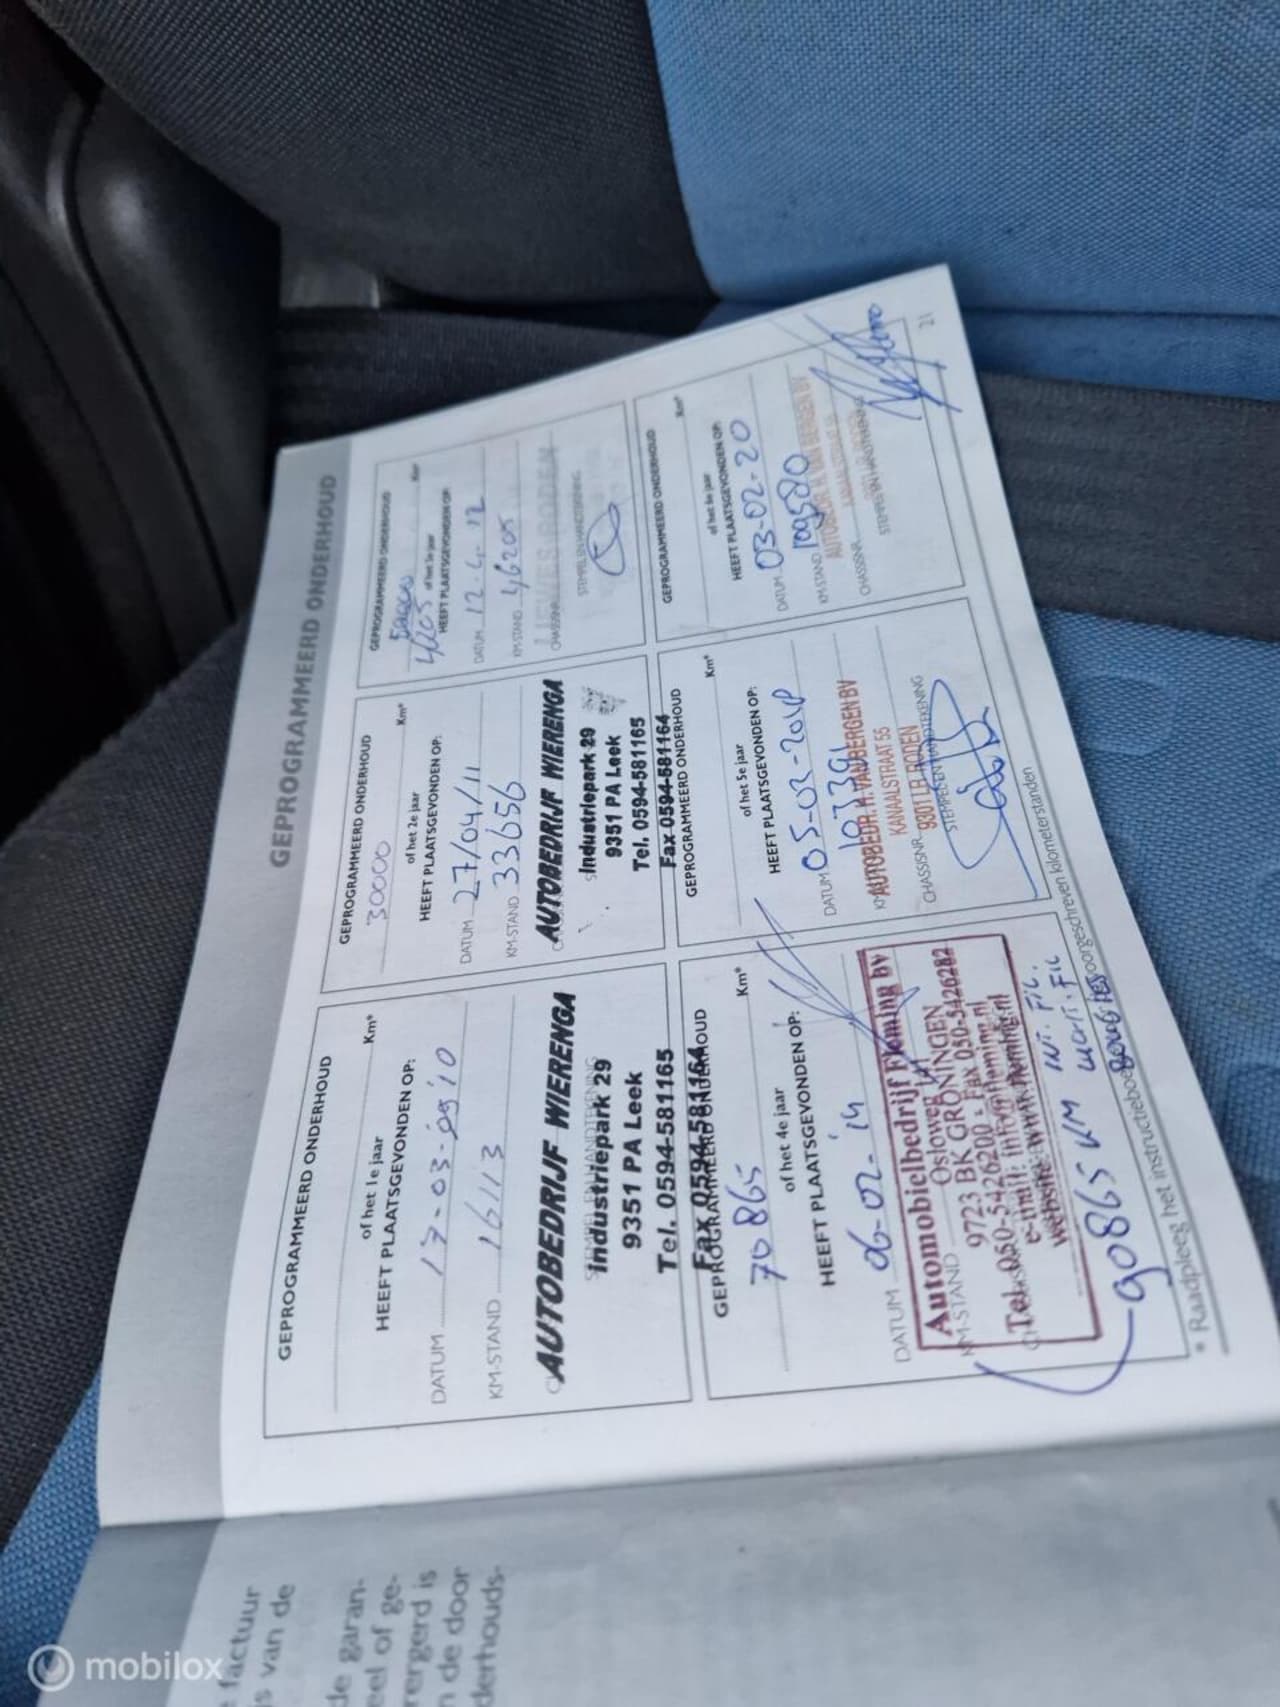 GEPROGRAMMEERD ONDERHOUD
GEPROGRAMMEERD ONDERHOUD
Km*
of het 1e jaar
HEEFT PLAATSGEVONDEN OP:
DATUM 17-03-'10
KM-STAND 16113
AUTOBEDRIJF WIERENGA
Industriepark 29
9351 PA Leek
Tel. 0594-581165
Fax 0594-581164
GEPROGRAMMEERD ONDERHOUD
30000 Km*
of het 2e jaar
HEEFT PLAATSGEVONDEN OP:
DATUM 27/04/11
KM-STAND 33656
AUTOBEDRIJF WIERENGA
Industriepark 29
9351 PA Leek
Tel. 0594-581165
Fax 0594-581164
GEPROGRAMMEERD ONDERHOUD
Km*
of het 3e jaar
HEEFT PLAATSGEVONDEN OP:
DATUM 12-4-12
KM-STAND 46205
CHASSISNR.
STEMPEL EN HANDTEKENING
GEPROGRAMMEERD ONDERHOUD
70865 Km*
of het 4e jaar
HEEFT PLAATSGEVONDEN OP:
DATUM 06-02-'14
KM-STAND
Automobielbedrijf Fleming bv
Osloweg
9723 BK GRONINGEN
Tel. 050-5426200 - Fax 050-5426282
e-mail: info@fleming.nl
website: www.fleming.nl
90865 KM
GEPROGRAMMEERD ONDERHOUD
Km*
of het 5e jaar
HEEFT PLAATSGEVONDEN OP:
DATUM 05-02-2018
AUTOBEDR. H. VAN BERGEN BV
KANAALSTRAAT 55
9301 LR RODEN
CHASSISNR.
STEMPEL EN HANDTEKENING
GEPROGRAMMEERD ONDERHOUD
Km*
of het 6e jaar
HEEFT PLAATSGEVONDEN OP:
DATUM 03-02-20
KM-STAND 109580
AUTOBEDR. H. VAN BERGEN BV
CHASSISNR.
STEMPEL EN HANDTEKENING
* Raadpleeg het instructieboekje voorgeschreven kilometerstanden
21
factuur
van de
de garan-
eel of ge-
rergerd is
de door
derhouds-
mobilox